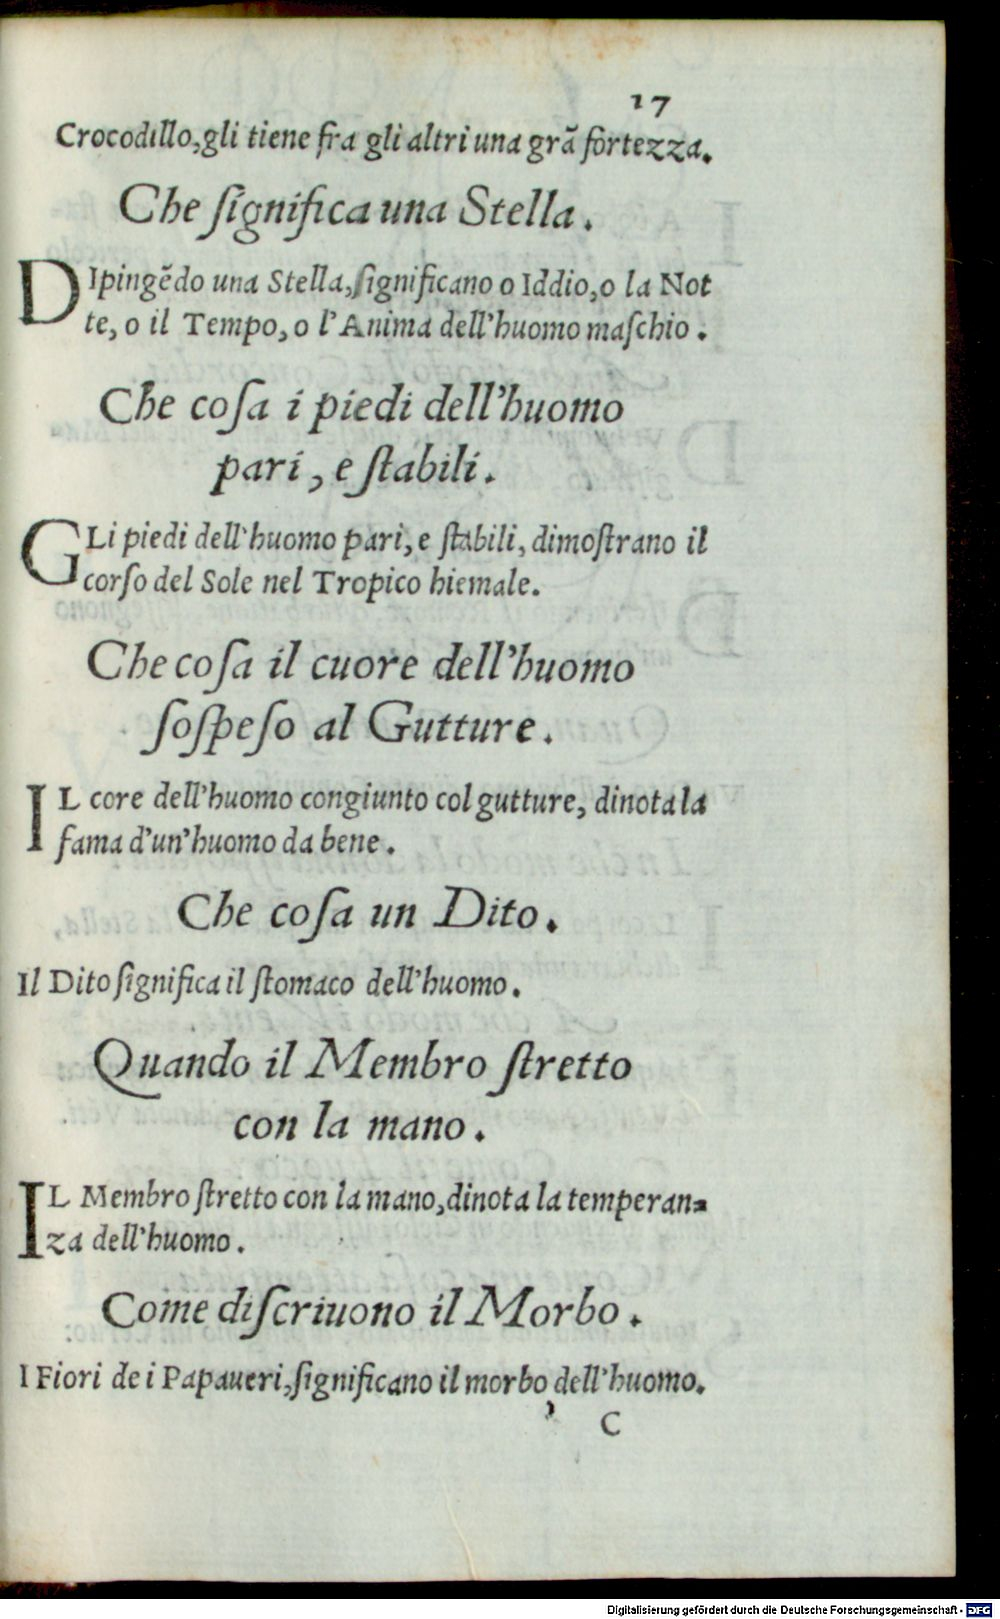 17
Crocodillo, gli tiene fra gli altri una grã fortezza.
Che ſignifica una Stella.
DIpingẽdo una Stella, ſignificano o Iddio, o la Not
te, o il Tempo, o l'Anima dell'huomo maſchio.
Che coſa i piedi dell'huomo
pari, e ſtabili.
GLi piedi dell'huomo pari, e ſtabili, dimoſtrano il
corſo del Sole nel Tropico hiemale.
Che coſa il cuore dell'huomo
ſoſpeſo al Gutture.
IL core dell'huomo congiunto col gutture, dinota la
fama d'un'huomo da bene.
Che coſa un Dito.
Il Dito ſignifica il ſtomaco dell'huomo.
Quando il Membro ſtretto
con la mano.
IL Membro ſtretto con la mano, dinota la temperan=
za dell'huomo.
Come diſcriuono il Morbo.
I Fiori de i Papaueri, ſignificano il morbo dell'huomo.
C
Digitalisierung gefördert durch die Deutsche Forschungsgemeinschaft - DFG